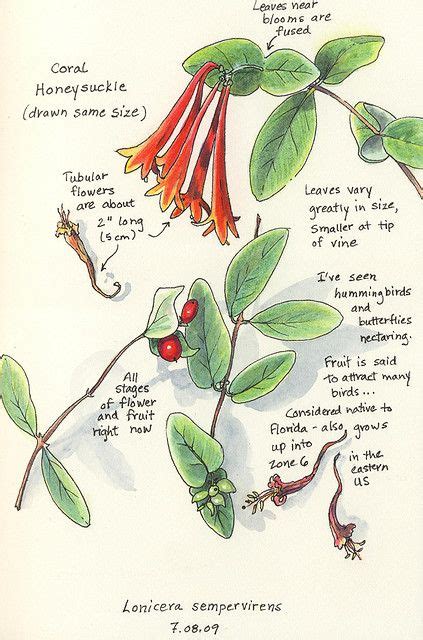 Leaves near
blooms are
fused
Coral
Honeysuckle
(drawn same size)
Tubular
flowers
are about
2" long
(5 cm)
Leaves vary
greatly in size,
smaller at tip
of vine
I've seen
hummingbirds
and
butterflies
nectaring.
Fruit is said
to attract many
birds...
All
stages
of flower
and fruit
right now
Considered native to
Florida - also grows
up into
zone 6
in the
eastern
US
Lonicera sempervirens
7.08.09